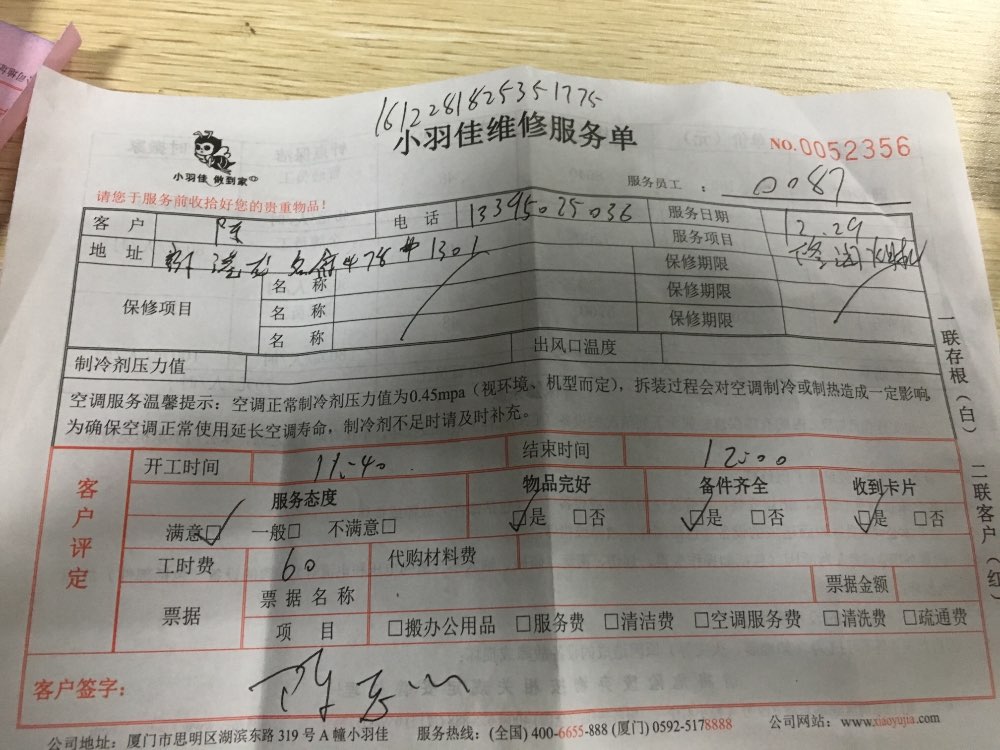 161228182535 1775
小羽佳维修服务单
NO.0052356
小羽佳 做到家
服务员工 : 0087
请您于服务前收拾好您的贵重物品!
客 户 陈 电 话 13395025036 服务日期 12.29
地 址 478 # 1301 服务项目 修
保修项目 名 称 保修期限
名 称 保修期限
名 称 保修期限
制冷剂压力值 出风口温度
空调服务温馨提示：空调正常制冷剂压力值为0.45mpa（视环境、机型而定），拆装过程会对空调制冷或制热造成一定影响,
为确保空调正常使用延长空调寿命，制冷剂不足时请及时补充。
一联存根（白）
二联客户（红）
客户评定
开工时间 11:40 结束时间 12:00
服务态度 物品完好 备件齐全 收到卡片
满意☑ 一般□ 不满意□ ☑是 □否 ☑是 □否 ☑是 □否
工时费 60 代购材料费
票据 票据名称 票据金额
项 目 □搬办公用品 □服务费 □清洁费 □空调服务费 □清洗费 □疏通费
客户签字: 陈
公司地址: 厦门市思明区湖滨东路 319 号 A 幢小羽佳 服务热线: (全国) 400-6655-888 (厦门) 0592-5178888 公司网站: www.xiaoyujia.com